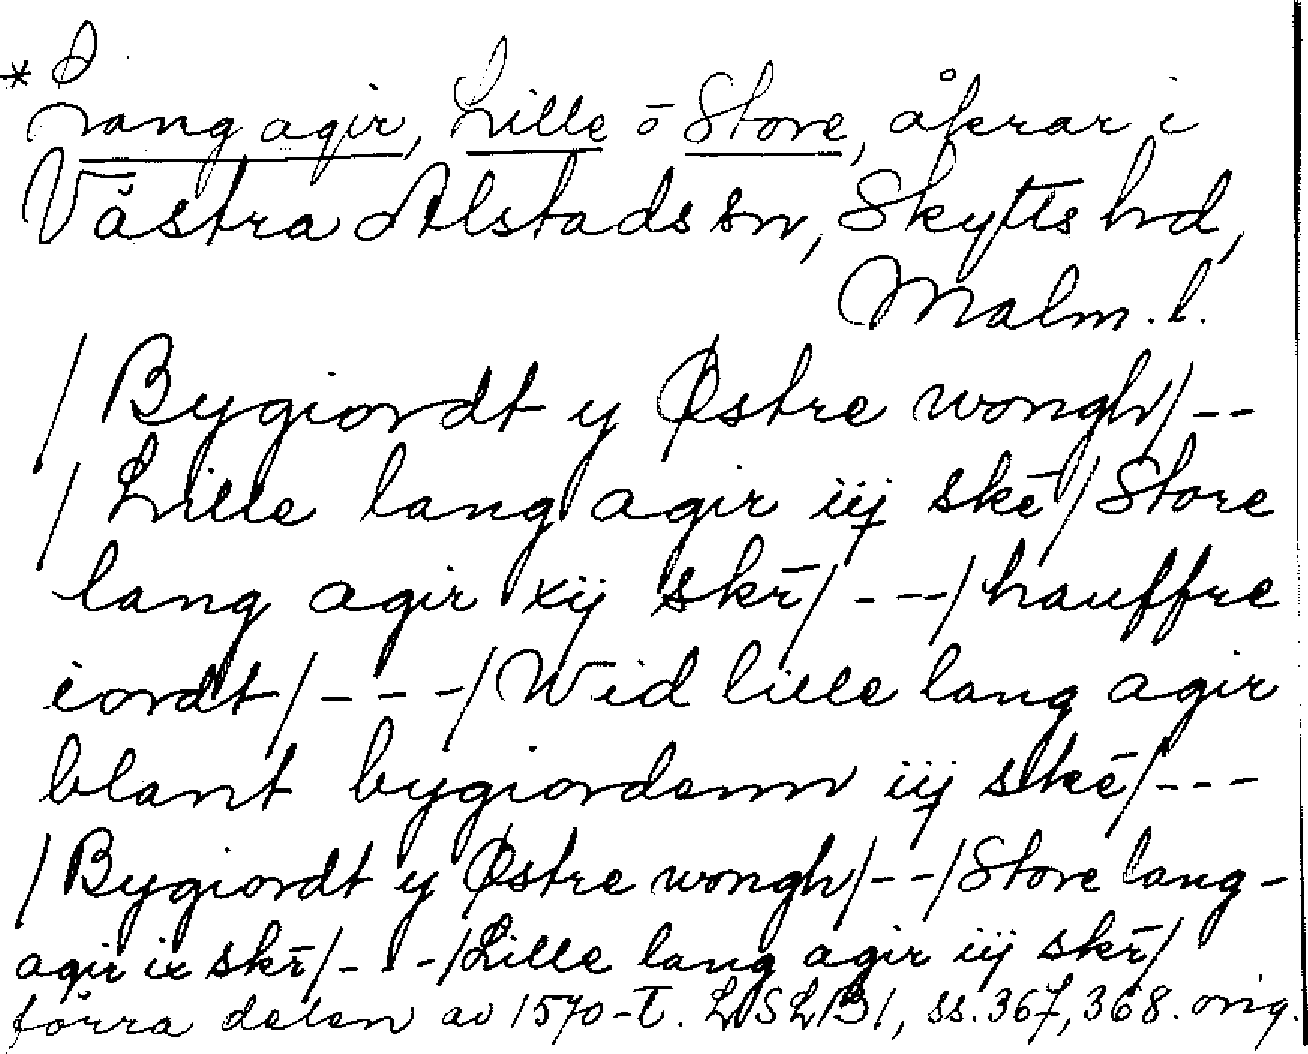 * Lang agir, Lille o Store, åkrar i
Västra Alstads sn, Skytts hd,
Malm. l.
/ Bygiordt y Østre wongh/--
/ Lille lang agir iij skē/Store
lang agir xij skr̄/---/hauffre
iordt/---/Wid lille lang agir
blant bygiordenn iij skē/---
/Bygiordt y Østre wongh/--/Store lang-
agir ix skr̄/---/Lille lang agir iij skr̄/
förra delen av 1570-t. LSLB1, ss.367,368. orig.